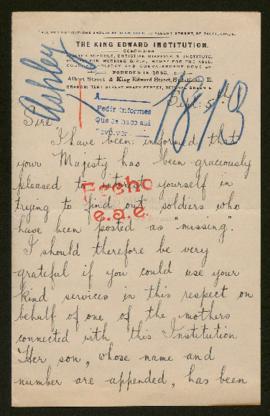 THE KING EDWARD INSTITUTION.
Albert Street & King Edward Street, E.
Ashley
1813
Sept 5th
Sire
Pedir informes
Hecho
e.a.e.
I have been informed that
your Majesty has been graciously
pleased to interest yourself in
trying to find out soldiers who
have been posted as "missing".
I should therefore be very
grateful if you could use your
kind services in this respect on
behalf of one of the mothers
connected with this Institution
Her son, whose name and
number are appended, has been